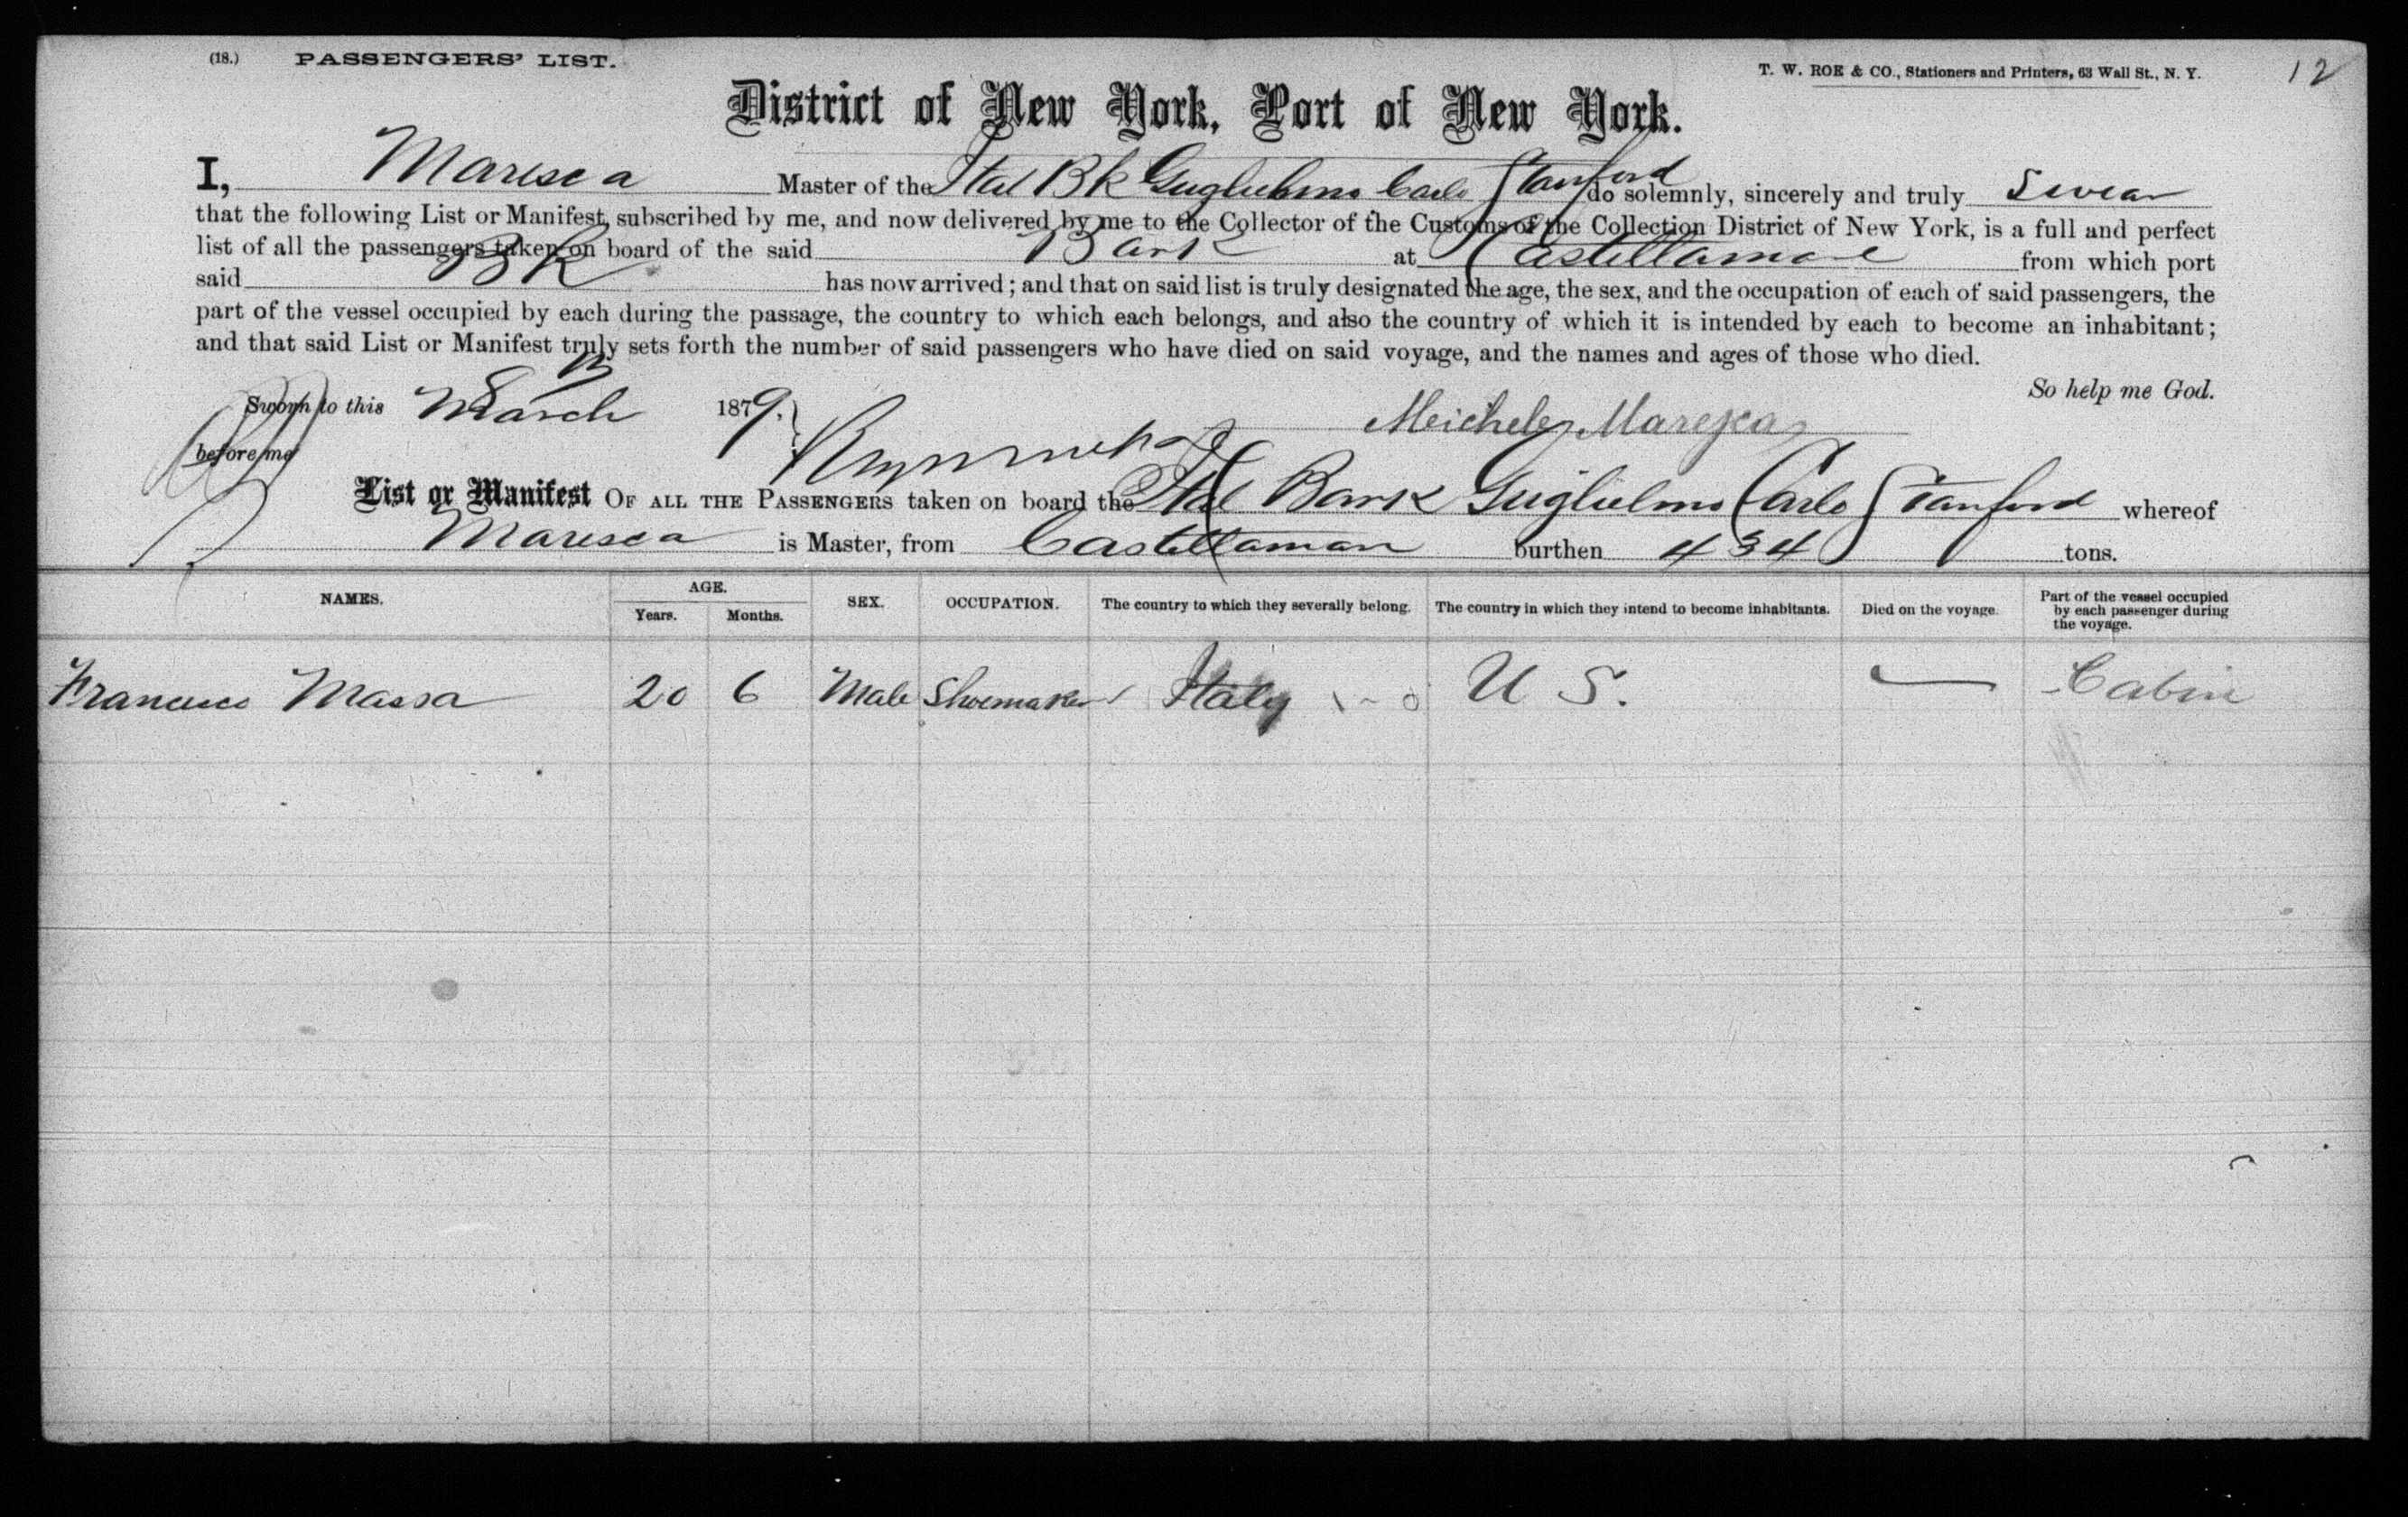 (18.) PASSENGERS' LIST. T. W. ROE & CO., Stationers and Printers, 63 Wall St., N. Y. 12
District of New York, Port of New York.
I, Maresca Master of the Ital Bk Guglielmo Carlo Stanford do solemnly, sincerely and truly Swear
that the following List or Manifest, subscribed by me, and now delivered by me to the Collector of the Customs of the Collection District of New York, is a full and perfect
list of all the passengers taken on board of the said Bark at Castellamare from which port
said Bk has now arrived; and that on said list is truly designated the age, the sex, and the occupation of each of said passengers, the
part of the vessel occupied by each during the passage, the country to which each belongs, and also the country of which it is intended by each to become an inhabitant;
and that said List or Manifest truly sets forth the number of said passengers who have died on said voyage, and the names and ages of those who died.
So help me God.
Sworn to this March 1879.
Meichele Maresca
before me
List or Manifest OF ALL THE PASSENGERS taken on board the Ital Bark Guglielmo Carlo Stanford whereof
Maresca is Master, from Castellaman burthen 434 tons.
NAMES. AGE. Years. Months. SEX. OCCUPATION. The country to which they severally belong. The country in which they intend to become inhabitants. Died on the voyage. Part of the vessel occupied by each passenger during the voyage.
Francesco Massa 20 6 Male Shoemaker Italy U S. Cabin